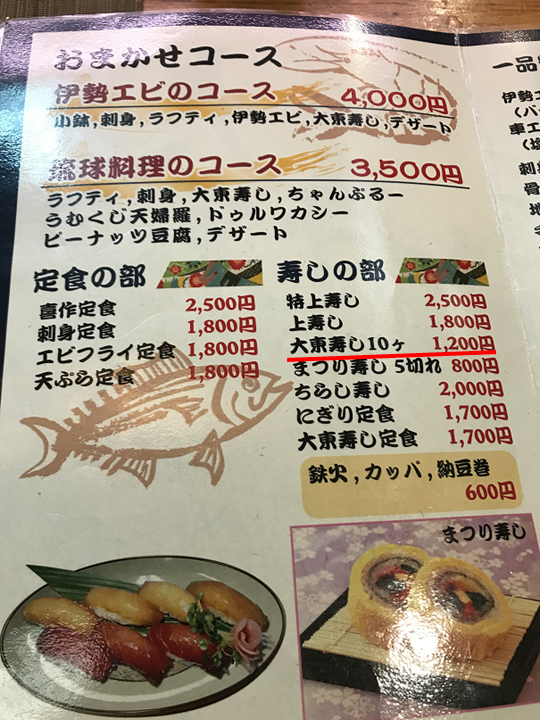 おまかせコース
伊勢エビのコース 4,000円
小鉢,刺身,ラフティ,伊勢エビ,大東寿し,デザート
琉球料理のコース 3,500円
ラフティ,刺身,大東寿し,ちゃんぷるー
うむくじ天婦羅,ドゥルワカシー
ピーナッツ豆腐,デザート
定食の部
喜作定食 2,500円
刺身定食 1,800円
エビフライ定食 1,800円
天ぷら定食 1,800円
寿しの部
特上寿し 2,500円
上寿し 1,800円
大東寿し10ヶ 1,200円
まつり寿し 5切れ 800円
ちらし寿し 2,000円
にぎり定食 1,700円
大東寿し定食 1,700円
鉄火,カッパ,納豆巻
600円
まつり寿し
一品
伊勢エ
刺
骨
地